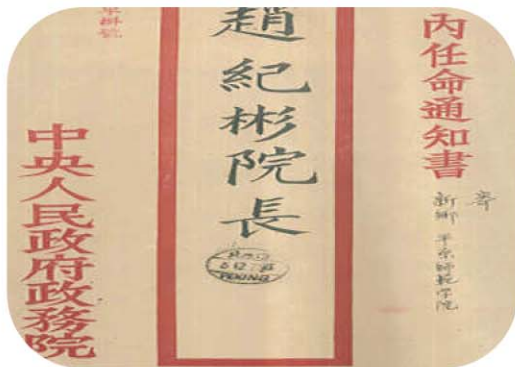 內任命通知書
寄
新鄉 平原師範学院
趙紀彬院長
PEKING
中央人民政府政務院